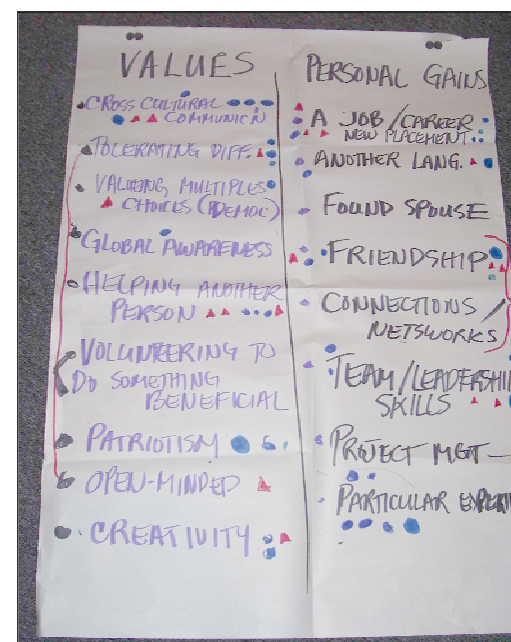 VALUES
CROSS CULTURAL
COMMUNICN
TOLERATING DIFF.
VALUING MULTIPLES
CHOICES (DEMOC)
GLOBAL AWARENESS
HELPING ANOTHER
PERSON
VOLUNTEERING TO
DO SOMETHING
BENEFICIAL
PATRIOTISM
OPEN-MINDED
CREATIVITY
PERSONAL GAINS
A JOB/CAREER
NEW PLACEMENT
ANOTHER LANG.
FOUND SPOUSE
FRIENDSHIP
CONNECTIONS/
NETSWORKS
TEAM/LEADERSHI
SKILLS
PROJECT MGT —
PARTICULAR